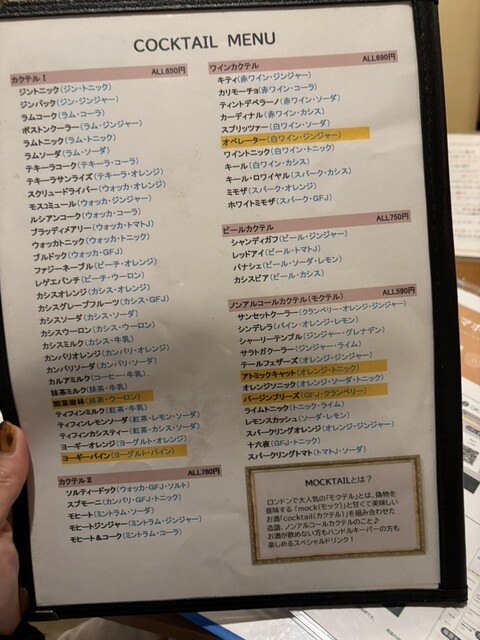 COCKTAIL MENU
カクテル I ALL650円
ジントニック(ジン・トニック)
ジンバック(ジン・ジンジャー)
ラムコーク(ラム・コーラ)
ボストンクーラー(ラム・ジンジャー)
ラムトニック(ラム・トニック)
ラムソーダ(ラム・ソーダ)
テキーラコーク(テキーラ・コーラ)
テキーラサンライズ(テキーラ・オレンジ)
スクリュードライバー(ウォッカ・オレンジ)
モスコミュール(ウォッカ・ジンジャー)
ルシアンコーク(ウォッカ・コーラ)
ブラッディメアリー(ウォッカ・トマトJ)
ウォッカトニック(ウォッカ・トニック)
ブルドック(ウォッカ・GFJ)
ファジーネーブル(ピーチ・オレンジ)
レゲエパンチ(ピーチ・ウーロン)
カシスオレンジ(カシス・オレンジ)
カシスグレープフルーツ(カシス・GFJ)
カシスソーダ(カシス・ソーダ)
カシスウーロン(カシス・ウーロン)
カシスミルク(カシス・牛乳)
カンパリオレンジ(カンパリ・オレンジ)
カンパリソーダ(カンパリ・ソーダ)
カルアミルク(コーヒー・牛乳)
抹茶ミルク(抹茶・牛乳)
(抹茶・ウーロン)
ティフィンミルク(紅茶・牛乳)
ティフィンレモンソーダ(紅茶・レモン・ソーダ)
ティフィンカシスティー(紅茶・カシス・オレンジ)
ヨーギーオレンジ(ヨーグルト・オレンジ)
ヨーギーパイン(ヨーグルト・パイン)
カクテルⅡ ALL780円
ソルティードック(ウォッカ・GFJ・ソルト)
スプモーニ(カンパリ・GFJ・トニック)
モヒート(ミントラム・ソーダ)
モヒートジンジャー(ミントラム・ジンジャー)
モヒート&コーク(ミントラム・コーラ)
ワインカクテル ALL690円
キティ(赤ワイン・ジンジャー)
カリモーチョ(赤ワイン・コーラ)
ティントデベラーノ(赤ワイン・ソーダ)
カーディナル(赤ワイン・カシス)
スプリッツァー(白ワイン・ソーダ)
オペレーター(白ワイン・ジンジャー)
ワイントニック(白ワイン・トニック)
キール(白ワイン・カシス)
キール・ロワイヤル(スパーク・カシス)
ミモザ(スパーク・オレンジ)
ホワイトミモザ(スパーク・GFJ)
ビールカクテル ALL750円
シャンディガフ(ビール・ジンジャー)
レッドアイ(ビール・トマトJ)
パナシェ(ビール・ソーダ・レモン)
カシスビア(ビール・カシス)
ノンアルコールカクテル(モクテル) ALL590円
サンセットクーラー(クランベリー・オレンジ・ジンジャー)
シンデレラ(パイン・オレンジ・レモン)
シャーリーテンプル(ジンジャー・グレナデン)
サラトガクーラー(ジンジャー・ライム)
テールフェザーズ(オレンジ・ジンジャー)
アトミックキャット(オレンジ・トニック)
オレンジソニック(オレンジ・ソーダ・トニック)
バージンブリーズ(GFJ・クランベリー)
ライムトニック(トニック・ライム)
レモンスカッシュ(ソーダ・レモン)
スパークリングオレンジ(オレンジ・ジンジャー)
十六夜(GFJ・トニック)
スパークリングトマト(トマトJ・ソーダ)
MOCKTAILとは?
ロンドンで大人気の「モクテル」とは、偽物を
意味する「mock(モック)」と甘くて美味しい
お酒「cocktail(カクテル)」を組み合わせた
造語。ノンアルコールカクテルのこと♪
お酒が飲めない方もハンドルキーパーの方も
楽しめるスペシャルドリンク!